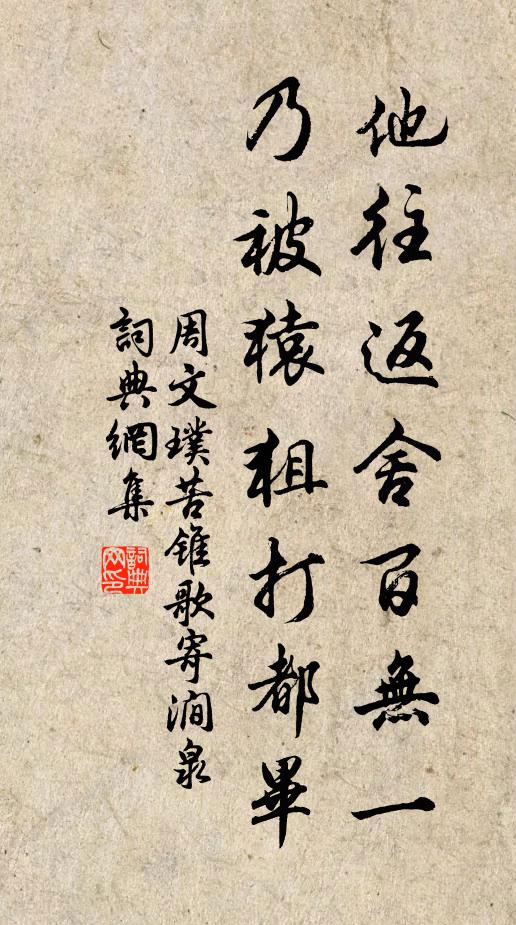 他往返舍百無一
乃被猿狙打都畢
周文璞苦錐歌寄澗泉
詞典網集
詞典網印